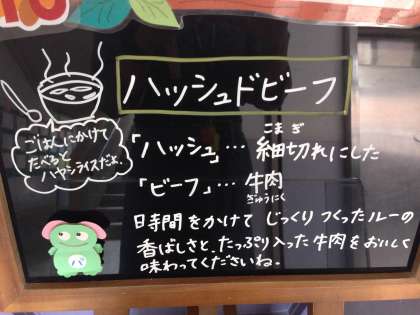 ハッシュドビーフ
ごはんにかけて
たべると
ハヤシライスだよ。
「ハッシュ」… 細切れにした
こまぎ
「ビーフ」… 牛肉
ぎゅうにく
日時間をかけて じっくりつくったルーの
香ばしさと、たっぷり入った牛肉をおいしく
味わってくださいね。
パ